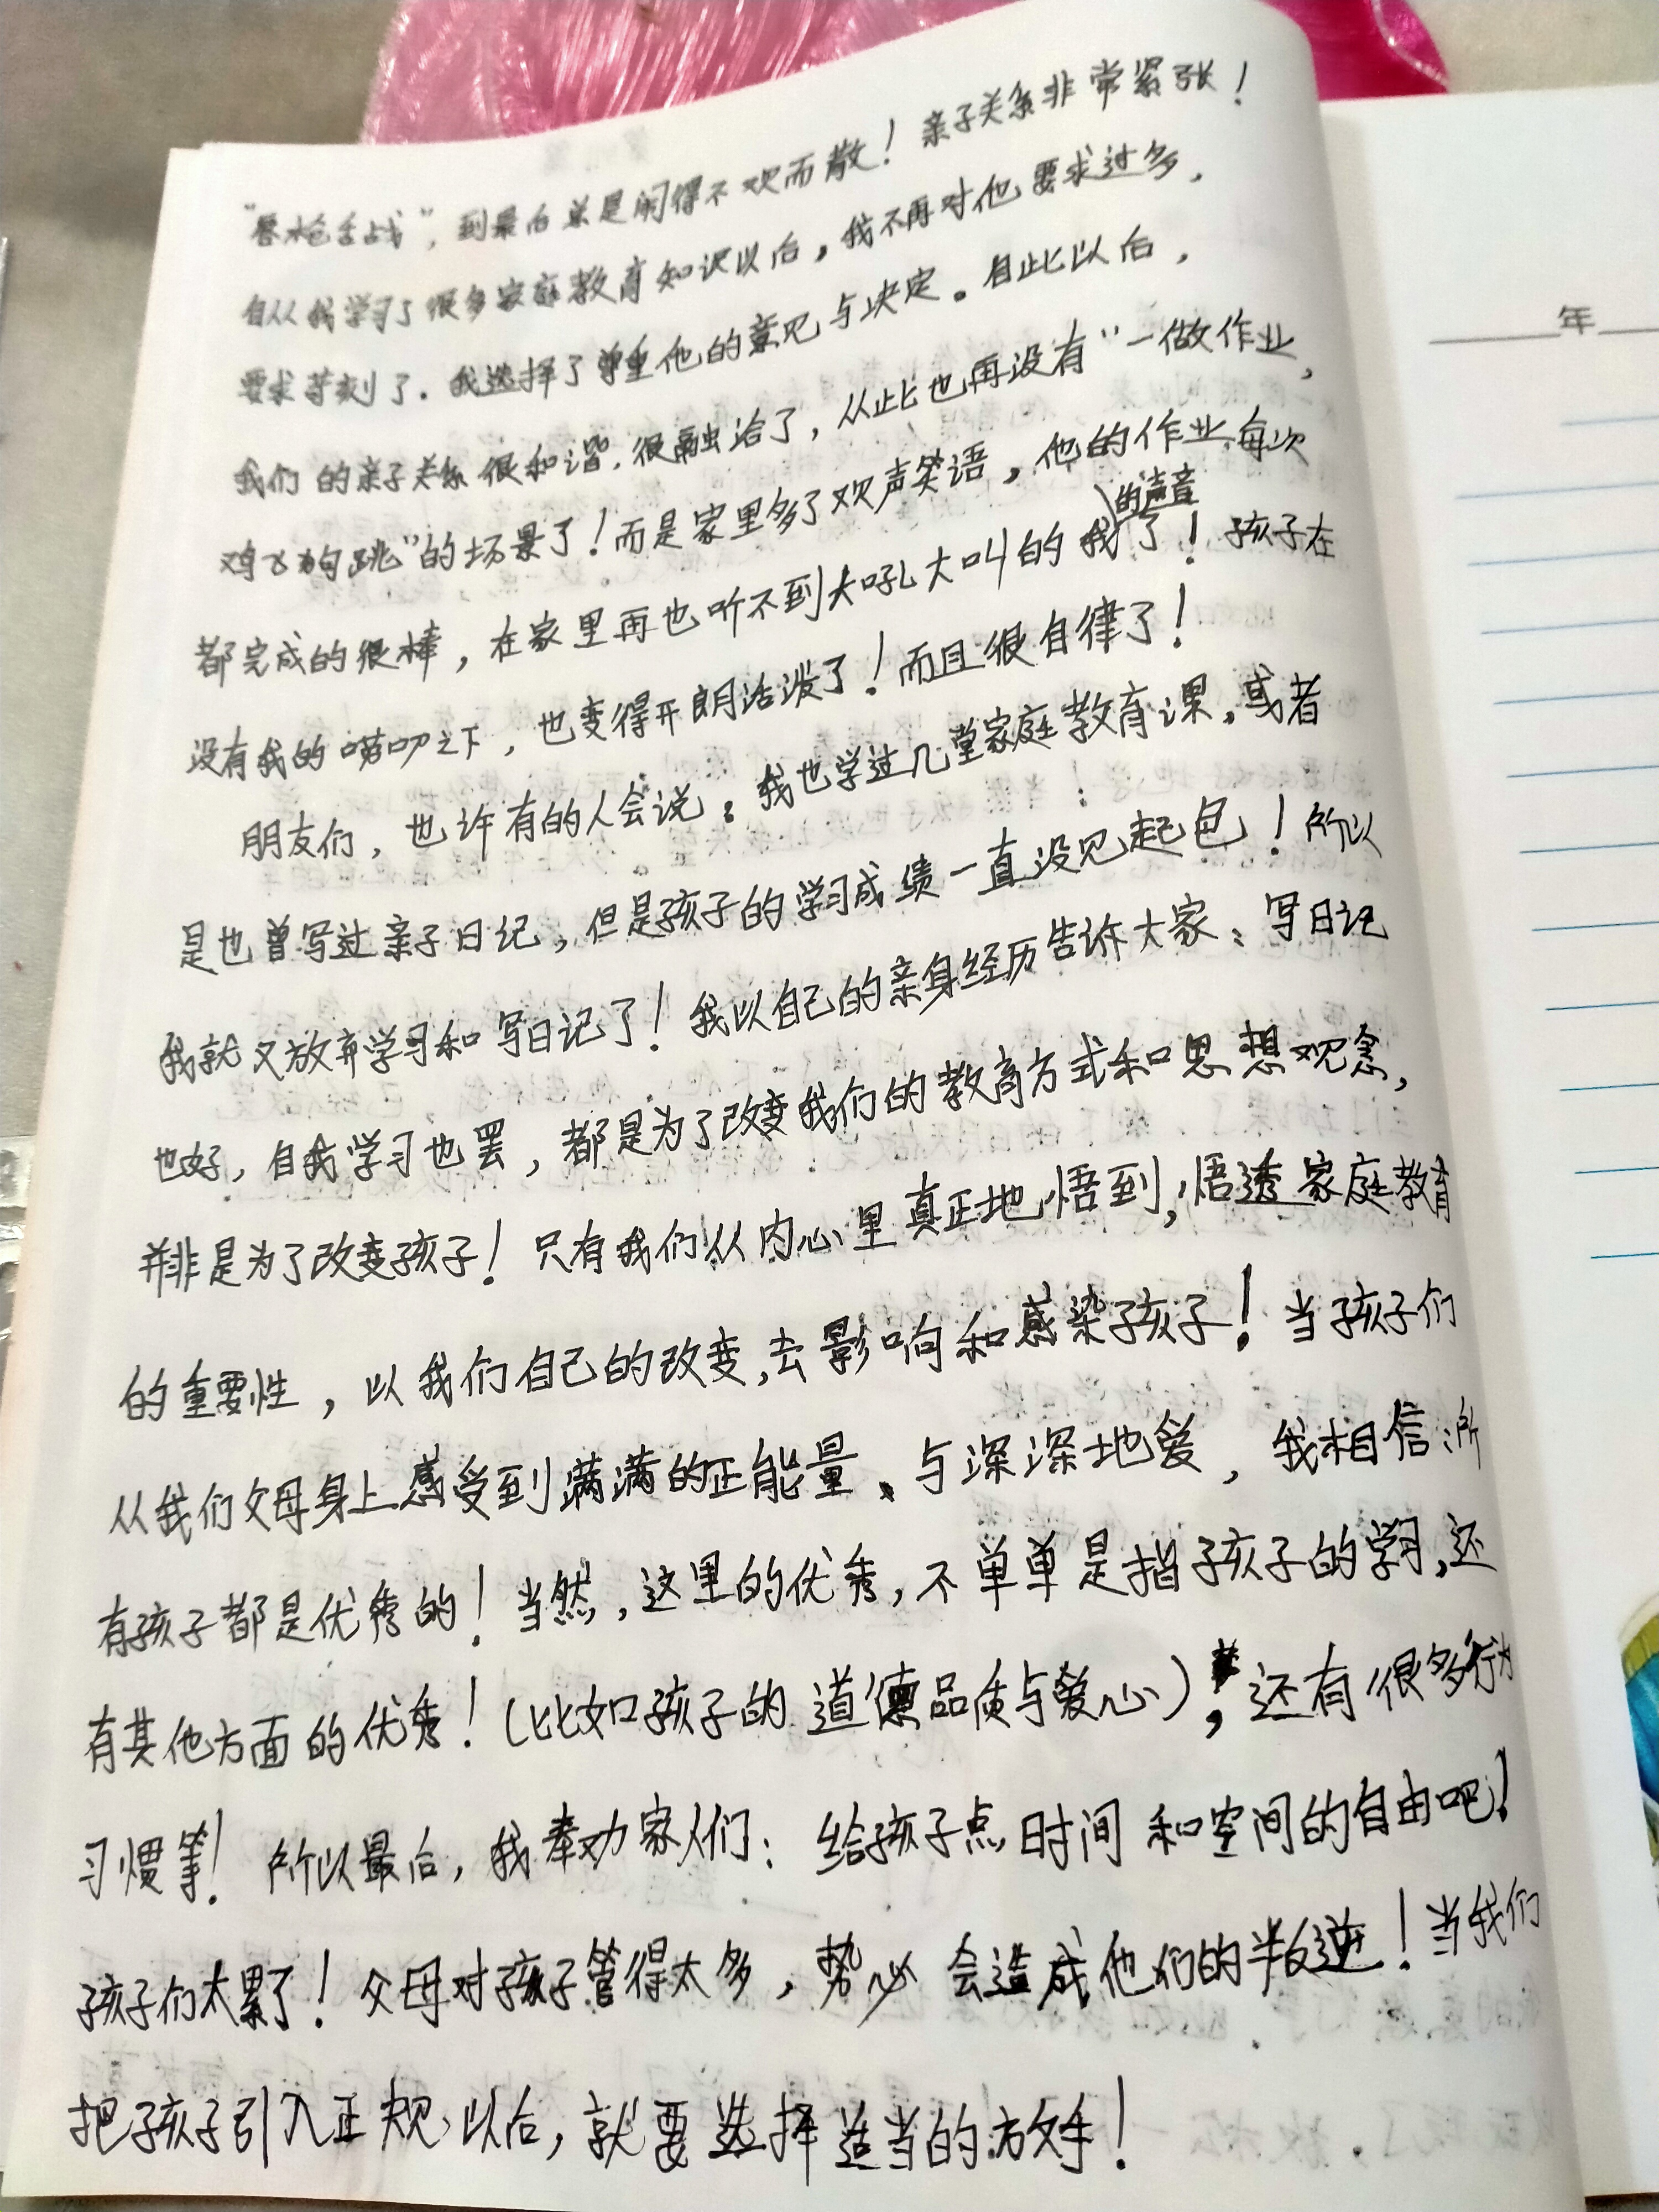 “唇枪舌战”，到最后总是闹得不欢而散！亲子关系非常紧张！
自从我学习了很多家庭教育知识以后，我不再对他要求过多，
要求苛刻了．我选择了尊重他的意见与决定。自此以后，
我们的亲子关系很和谐．很融洽了，从此也再没有“一做作业，
鸡飞狗跳”的场景了！而是家里多了欢声笑语，他的作业每次
都完成的很棒，在家里再也听不到大吼大叫的我的声音了！孩子在
没有我的唠叨之下，也变得开朗活泼了！而且很自律了！
朋友们，也许有的人会说：我也学过几堂家庭教育课，或者
是也曾写过亲子日记，但是孩子的学习成绩一直没见起色！所以
我就又放弃学习和写日记了！我以自己的亲身经历告诉大家：写日记
也好，自我学习也罢，都是为了改变我们的教育方式和思想观念，
并非是为了改变孩子！只有我们从内心里真正地悟到，悟透家庭教育
的重要性，以我们自己的改变，去影响和感染孩子！当孩子们
从我们父母身上感受到满满的正能量、与深深地爱，我相信：所
有孩子都是优秀的！当然，这里的优秀，不单单是指孩子的学习，还
有其他方面的优秀！（比如孩子的道德品质与爱心），还有很多行为
习惯等！所以最后，我奉劝家人们：给孩子点时间和空间的自由吧！
孩子们太累了！父母对孩子管得太多，势必会造成他们的判逆！当我们
把孩子引入正规以后，就要选择适当的放手！
年